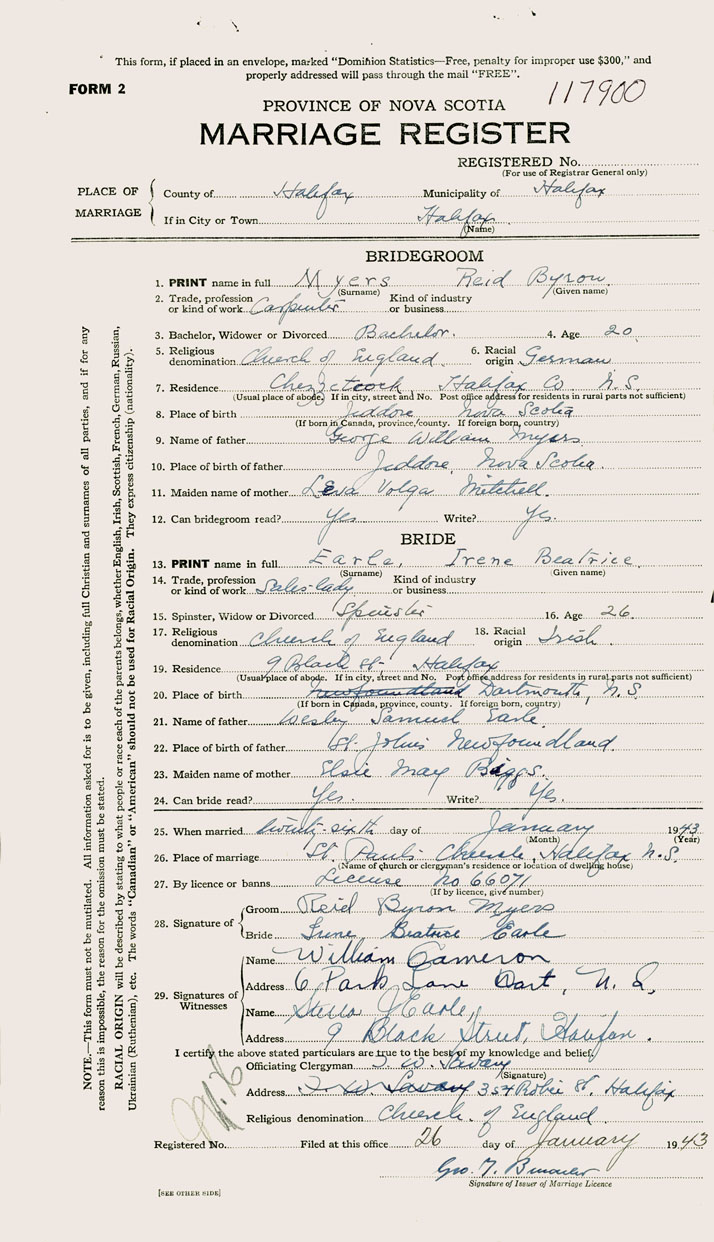 This form, if placed in an envelope, marked "Dominion Statistics—Free, penalty for improper use $300," and
properly addressed will pass through the mail "FREE".
FORM 2
117900
PROVINCE OF NOVA SCOTIA
MARRIAGE REGISTER
REGISTERED No.
(For use of Registrar General only)
PLACE OF MARRIAGE
County of Halifax Municipality of Halifax
If in City or Town Halifax
(Name)
BRIDEGROOM
1. PRINT name in full Myers Reid Byron
(Surname) (Given name)
2. Trade, profession or kind of work Carpenter Kind of industry or business
3. Bachelor, Widower or Divorced Bachelor. 4. Age 20
5. Religious denomination Church of England 6. Racial origin German
7. Residence Chezzetcook, Halifax Co N.S.
(Usual place of abode. If in city, street and No. Post office address for residents in rural parts not sufficient)
8. Place of birth Jeddore Nova Scotia
(If born in Canada, province, county. If foreign born, country)
9. Name of father George William Myers
10. Place of birth of father Jeddore, Nova Scotia.
11. Maiden name of mother Leva Volga Mitchell.
12. Can bridegroom read? Yes Write? Yes.
BRIDE
13. PRINT name in full Earle, Irene Beatrice
(Surname) (Given name)
14. Trade, profession or kind of work Sales-lady Kind of industry or business
15. Spinster, Widow or Divorced Spinster 16. Age 26.
17. Religious denomination Church of England 18. Racial origin Irish.
19. Residence 9 Black St. Halifax
(Usual place of abode. If in city, street and No. Post office address for residents in rural parts not sufficient)
20. Place of birth Newfoundland Dartmouth, N.S.
(If born in Canada, province, county. If foreign born, country)
21. Name of father Wesley Samuel Earle
22. Place of birth of father St. John's Newfoundland
23. Maiden name of mother Elsie May Biggs.
24. Can bride read? Yes. Write? Yes.
25. When married twenty-sixth day of January 1943
(Month) (Year)
26. Place of marriage St. Paul's Church, Halifax N.S.
(Name of church or clergyman's residence or location of dwelling house)
27. By licence or banns License No 66071
(If by licence, give number)
28. Signature of
Groom Reid Byron Myers
Bride Irene Beatrice Earle
29. Signatures of Witnesses
Name William Cameron
Address 6 Park Lane Dart, N.S.
Name Stella Earle,
Address 9 Black Street, Halifax.
I certify the above stated particulars are true to the best of my knowledge and belief.
Officiating Clergyman T. W. Savary
(Signature)
Address T. W. Savary 354 Robie St. Halifax
Religious denomination Church of England
Registered No. Filed at this office 26 day of January 1943
Geo. T.
Signature of Issuer of Marriage Licence
[SEE OTHER SIDE]
NOTE.—This form must not be mutilated. All information asked for is to be given, including full Christian and surnames of all parties, and if for any
reason this is impossible, the reason for the omission must be stated.
RACIAL ORIGIN will be described by stating to what people or race each of the parents belongs, whether English, Irish, Scottish, French, German, Russian,
Ukrainian (Ruthenian), etc. The words "Canadian" or "American" should not be used for Racial Origin. They express citizenship (nationality).